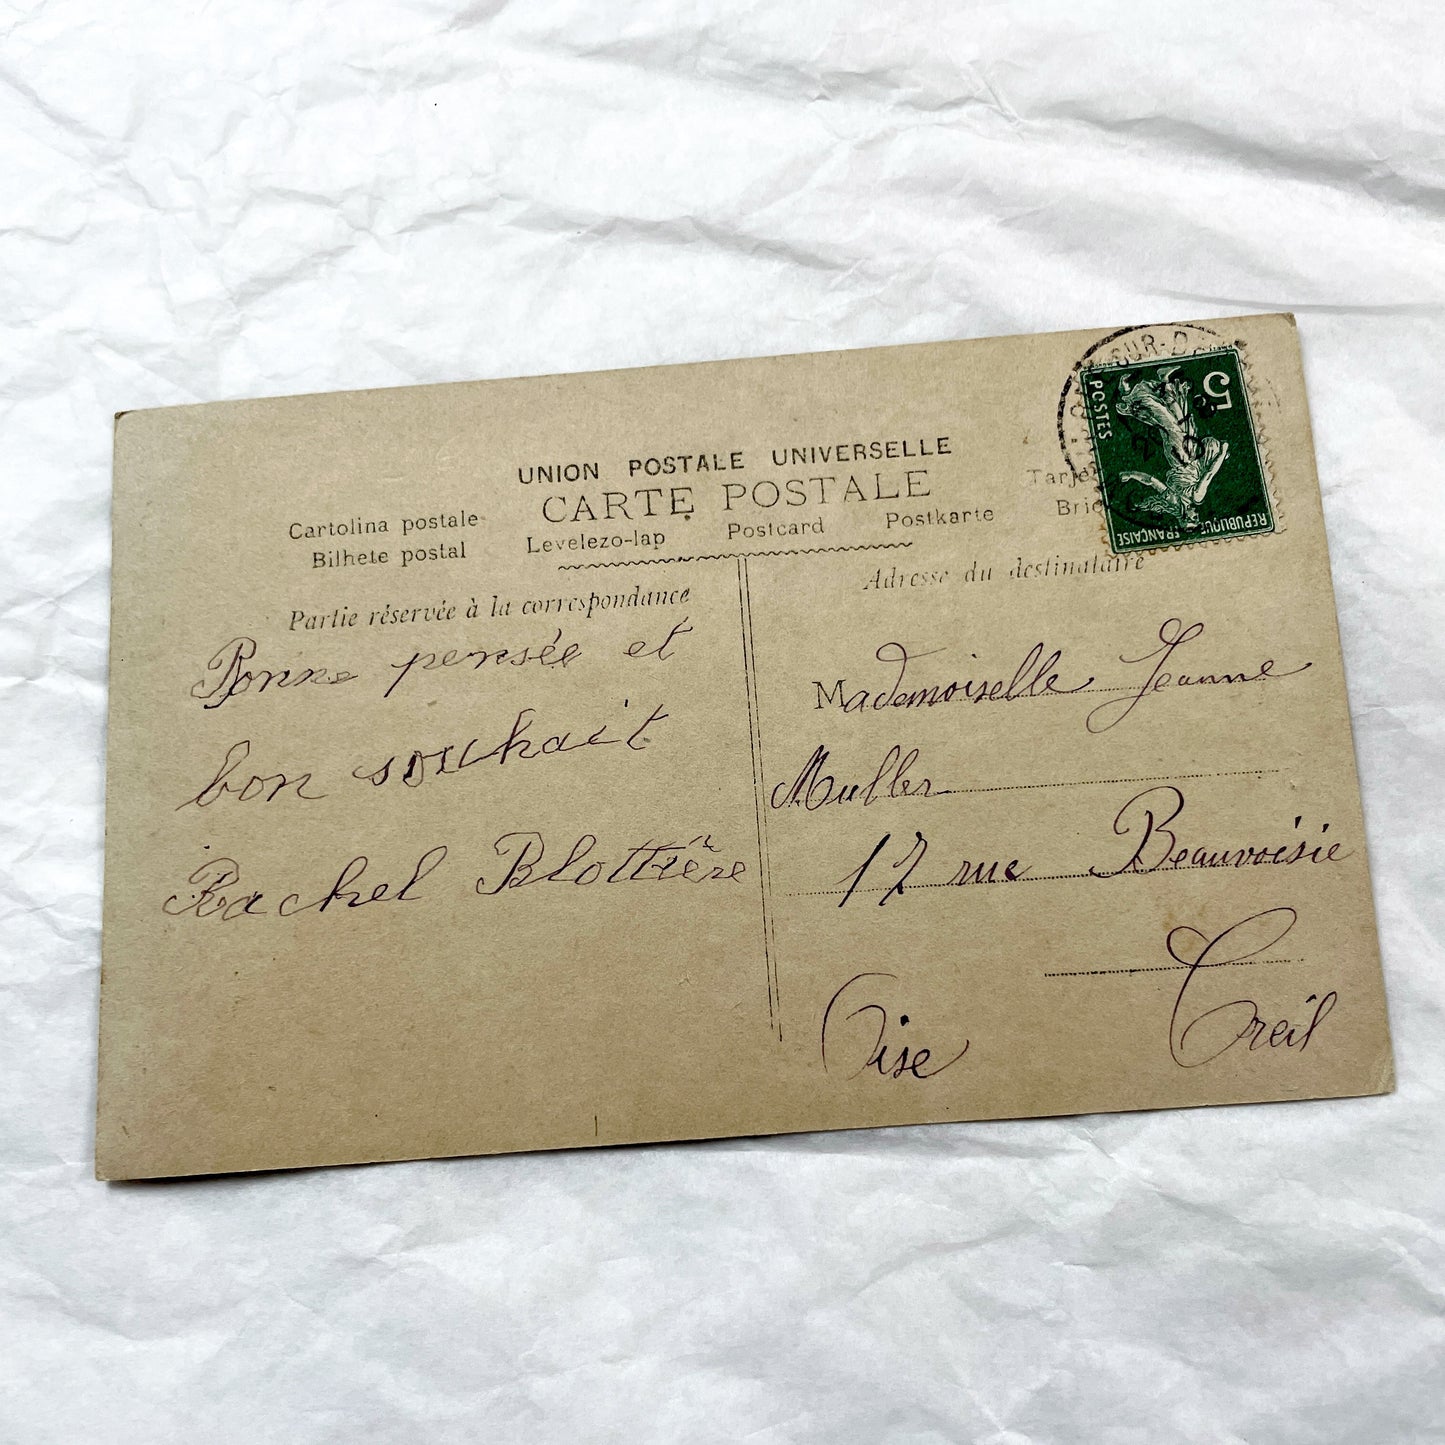 UNION POSTALE UNIVERSELLE
CARTE POSTALE
Cartolina postale
Bilhete postal
Levelezo-lap
Postcard
Postkarte
Partie réservée à la correspondance
Adresse du destinataire
Bonne pensée et
bon souhait
Rachel Blottière
Mademoiselle Jeanne
Muller
17 rue Beauvoisie
Creil
Oise
5
POSTES
REPUBLIQUE FRANÇAISE
SUR-D